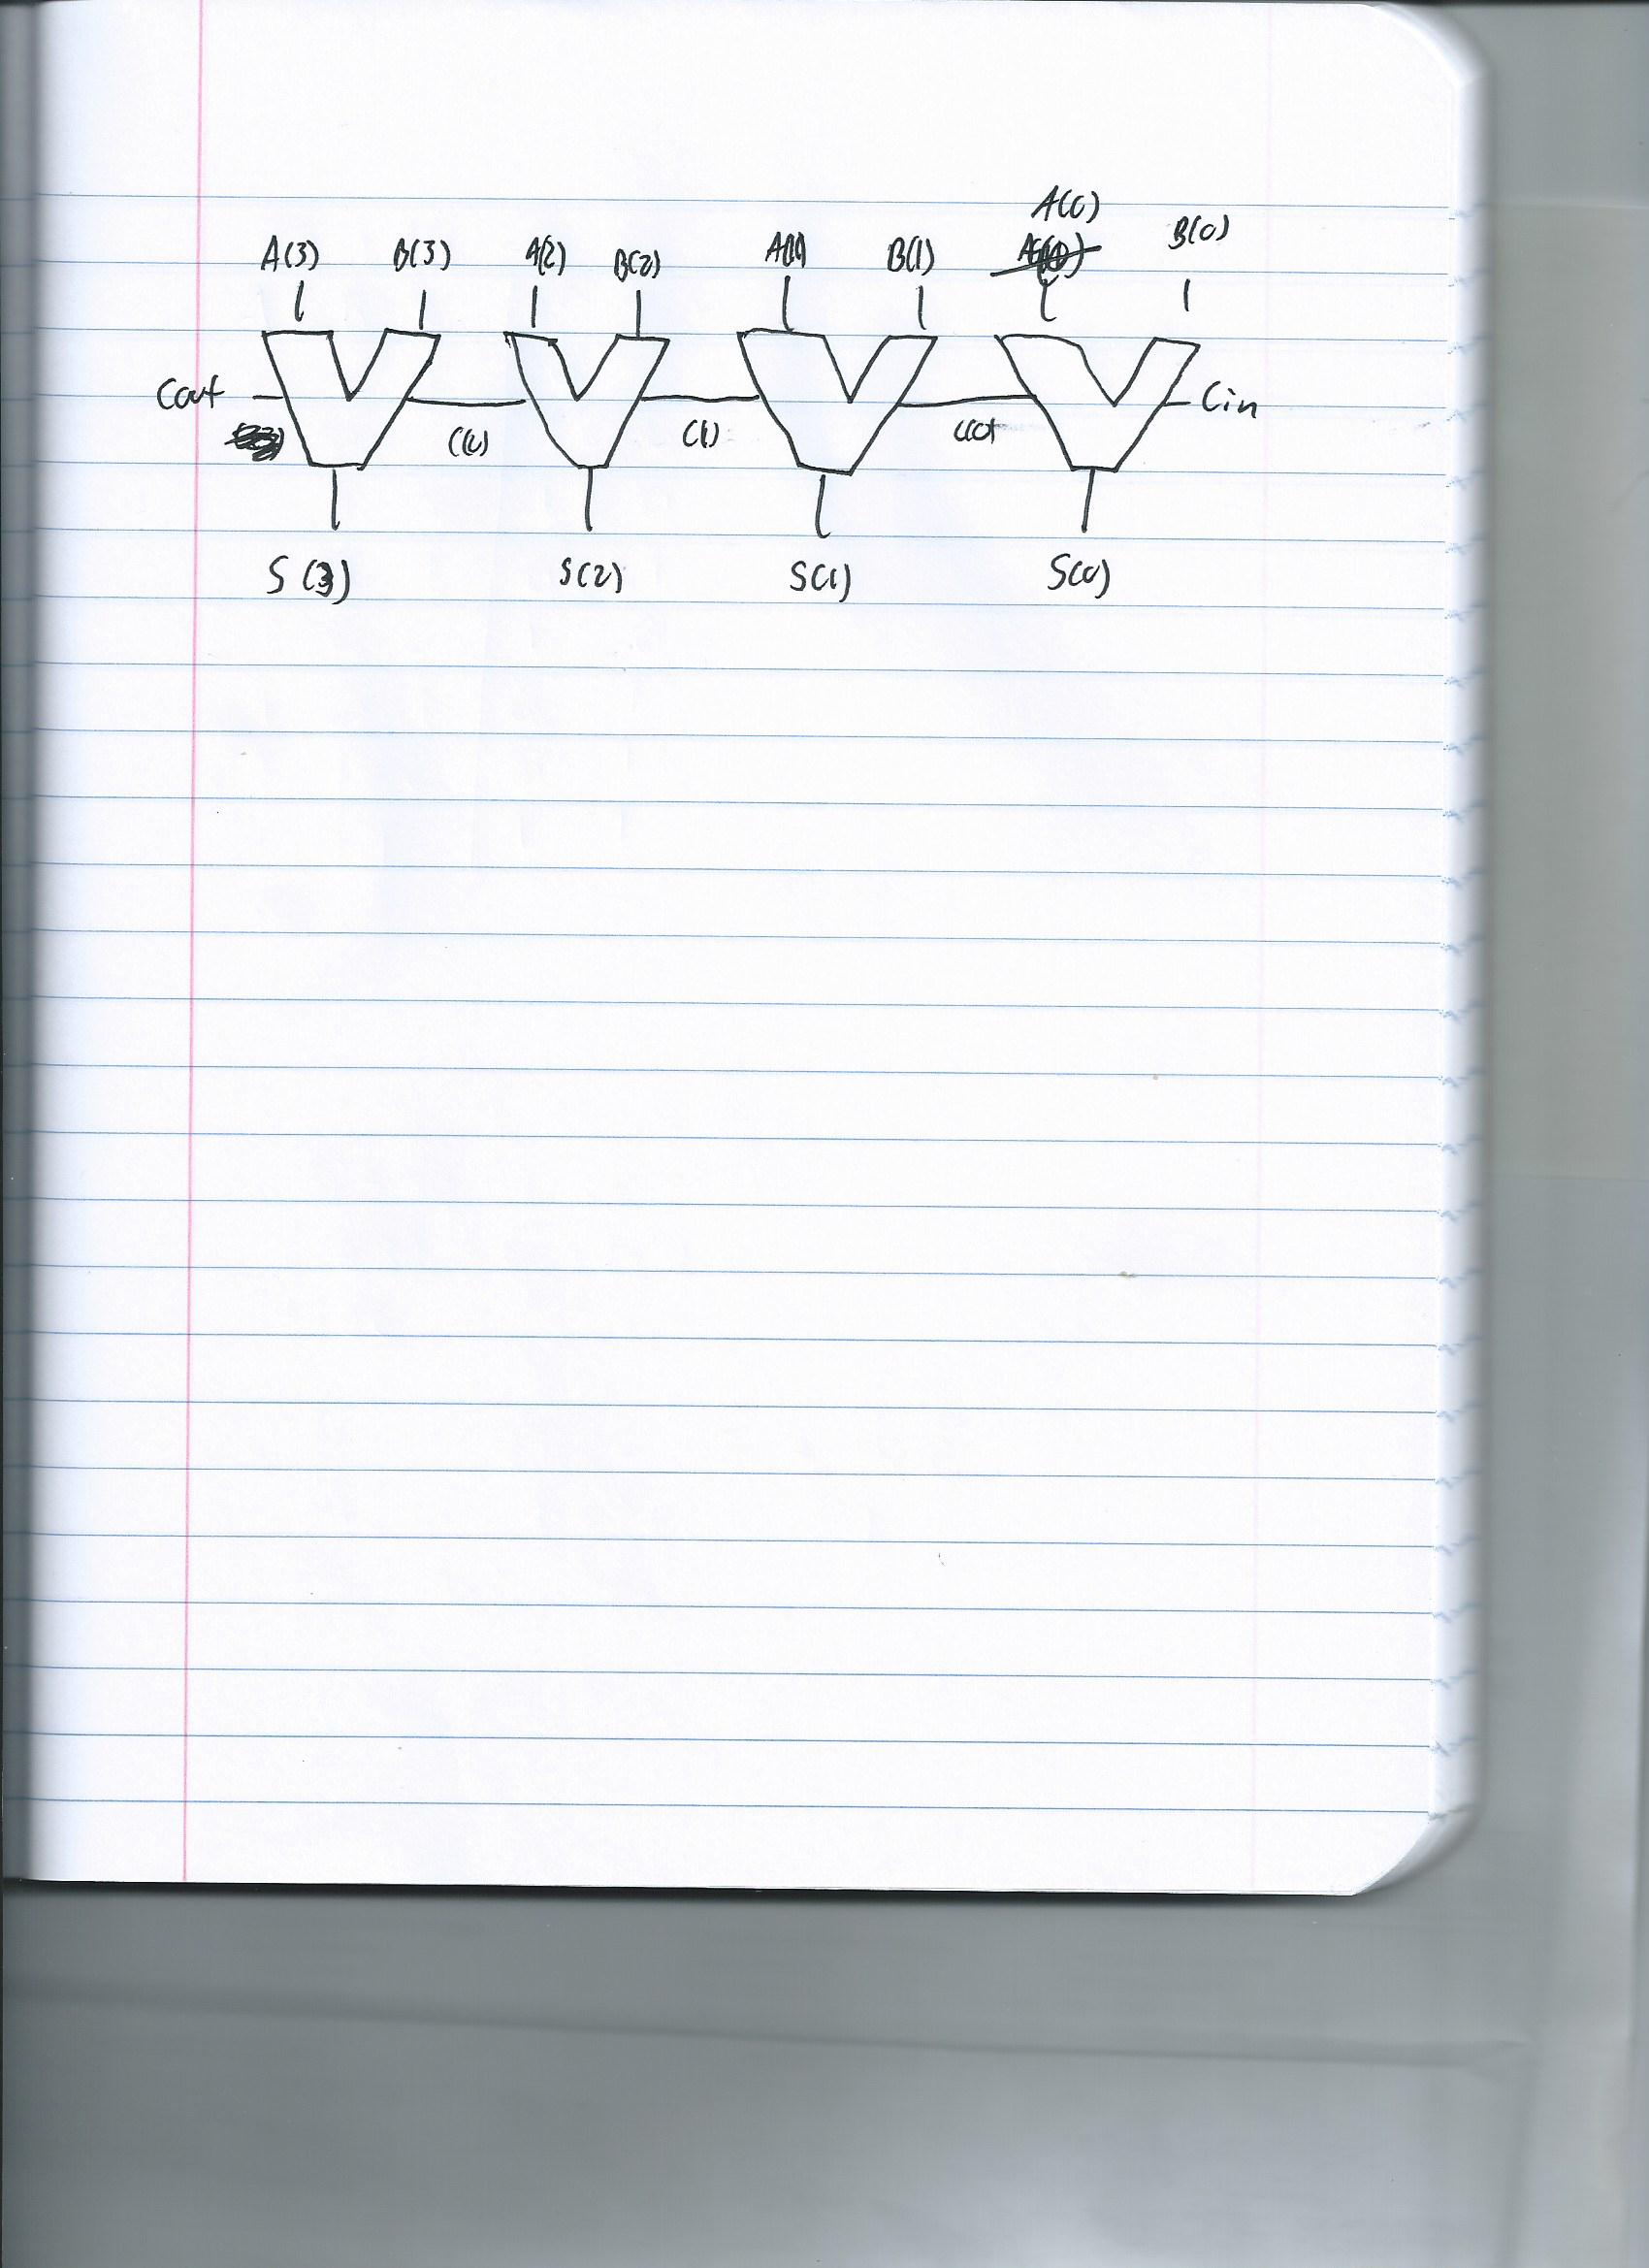 A(0)
A(3) B(3) A(2) B(2) A(1) B(1) B(0)
Cout Cin
C(1) C(0)
S(3) S(2) S(1) S(0)